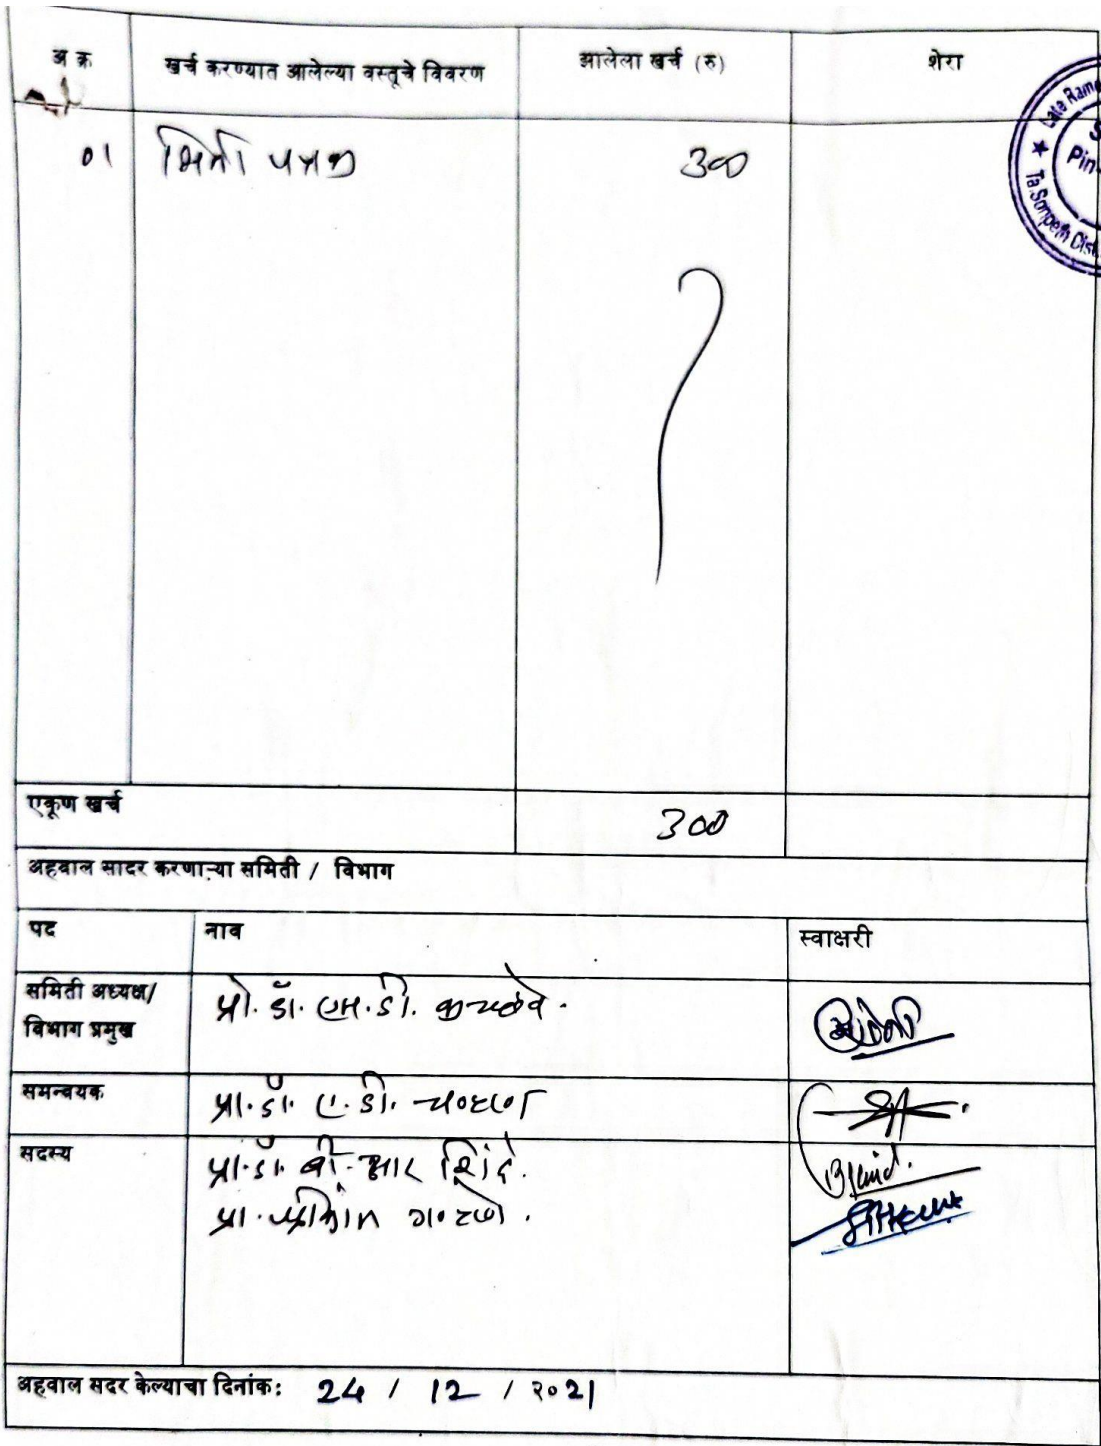 अ क्र खर्च करण्यात आलेल्या वस्तूचे विवरण आलेला खर्च (रु) शेरा
01 भिती पत्रक 300
Late Ram
Pin
Ta.Sonpeth Dist
एकूण खर्च 300
अहवाल सादर करणाऱ्या समिती / विभाग
पद नाव स्वाक्षरी
समिती अध्यक्ष/
विभाग प्रमुख प्रो. डॉ. एम. डी. कच्छवे.
समन्वयक प्रा. डॉ. ए. डी. चव्हाण
सदस्य प्रा. डॉ. बी. आर शिंदे.
प्रा.
अहवाल सदर केल्याचा दिनांक: 24 / 12 / २०21